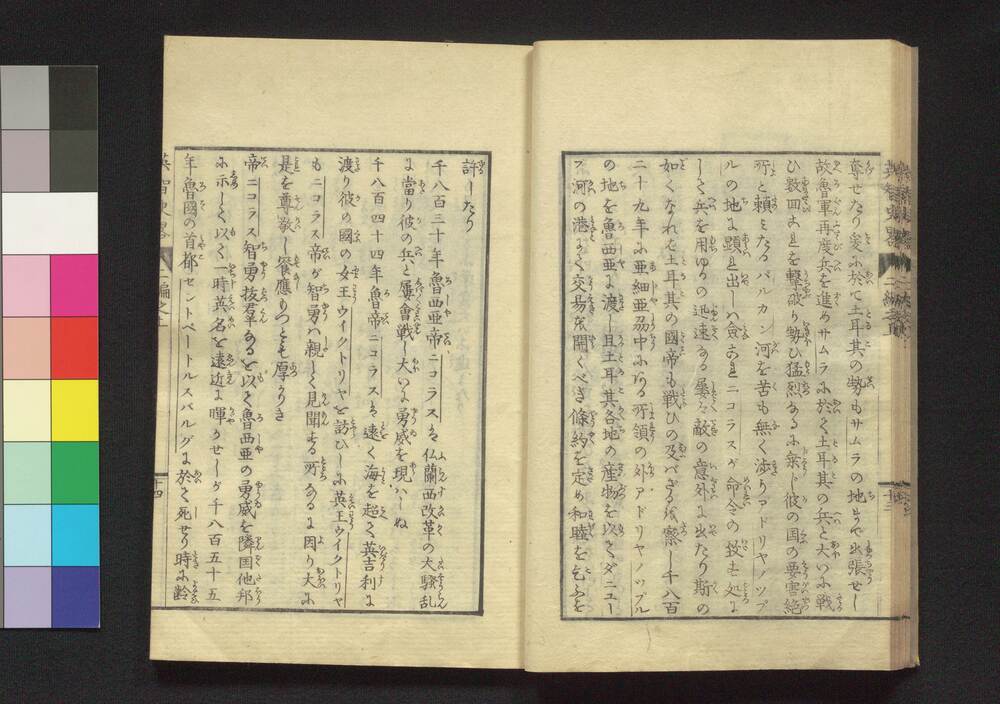 奪せたり爰に於て土耳其の勢もサムラの地まで出張せし
故魯軍再度兵を進めサムラに於て土耳其の兵と大いに戦
ひ数回これを撃破り勢ひ猛烈なるに乗じ彼の国の要害絶
所と頼みたるバルカン河を苦も無く渉りアドリヤノップ
ルの地に顕れ出しハ僉なニコラスが命令の致す処に
して兵を用ゆるの迅速なる屡々敵の意外に出たり斯の
如くなれば土耳其の國帝も戦ひの及バざるを察し千八百
二十九年に亜細亜刕中に在る所領の外アドリヤノップル
の地を魯西亜に渡し且土耳其各地の産物を以てダニュー
ブ河の港にて交易を開くべき條約を定め和睦を乞ふを
許したり
千八百三十年魯西亜帝ニコラスは仏蘭西改革の大騒乱
に當り彼の兵と屡會戦し大いに勇威を現ハしぬ
千八百四十四年魯帝ニコラスは遠く海を起て英吉利に
渡り彼の國の女王ウイクトリヤを訪ひしに英王ウイクトリヤ
もニコラス帝が智勇ハ親しく見聞する所なるに因り大に
是を尊敬し饗應もつとも厚かりき
帝ニコラス智勇抜羣なるを以て魯西亜の勇威を隣国他邦
に示して以て一時英名を遠近に暉かせしが千八百五十五
年魯國の首都セントペートルスバルグに於て死せり時に齢
英智史畧
二編之上
十四